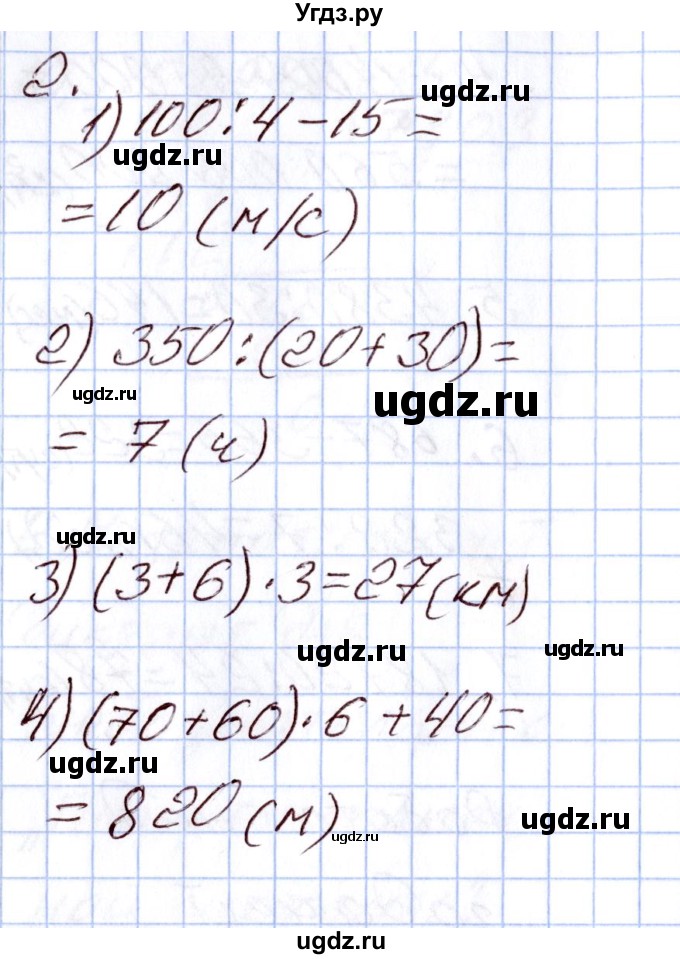 Угдз.ру
2.
ugdz.ru
1) 100:4-15=
ugdz.ru
=10 (м/с)
2) 350:(20+30)=
ugdz.ru
ugdz.ru
= 7 (ч)
ugdz.ru
3) (3+6)·3=27(км)
ugdz.ru
ugdz.ru
4) (70+60)·6+40=
ugdz.ru
=820 (м)
ugdz.ru
ugdz.ru
ugdz.ru